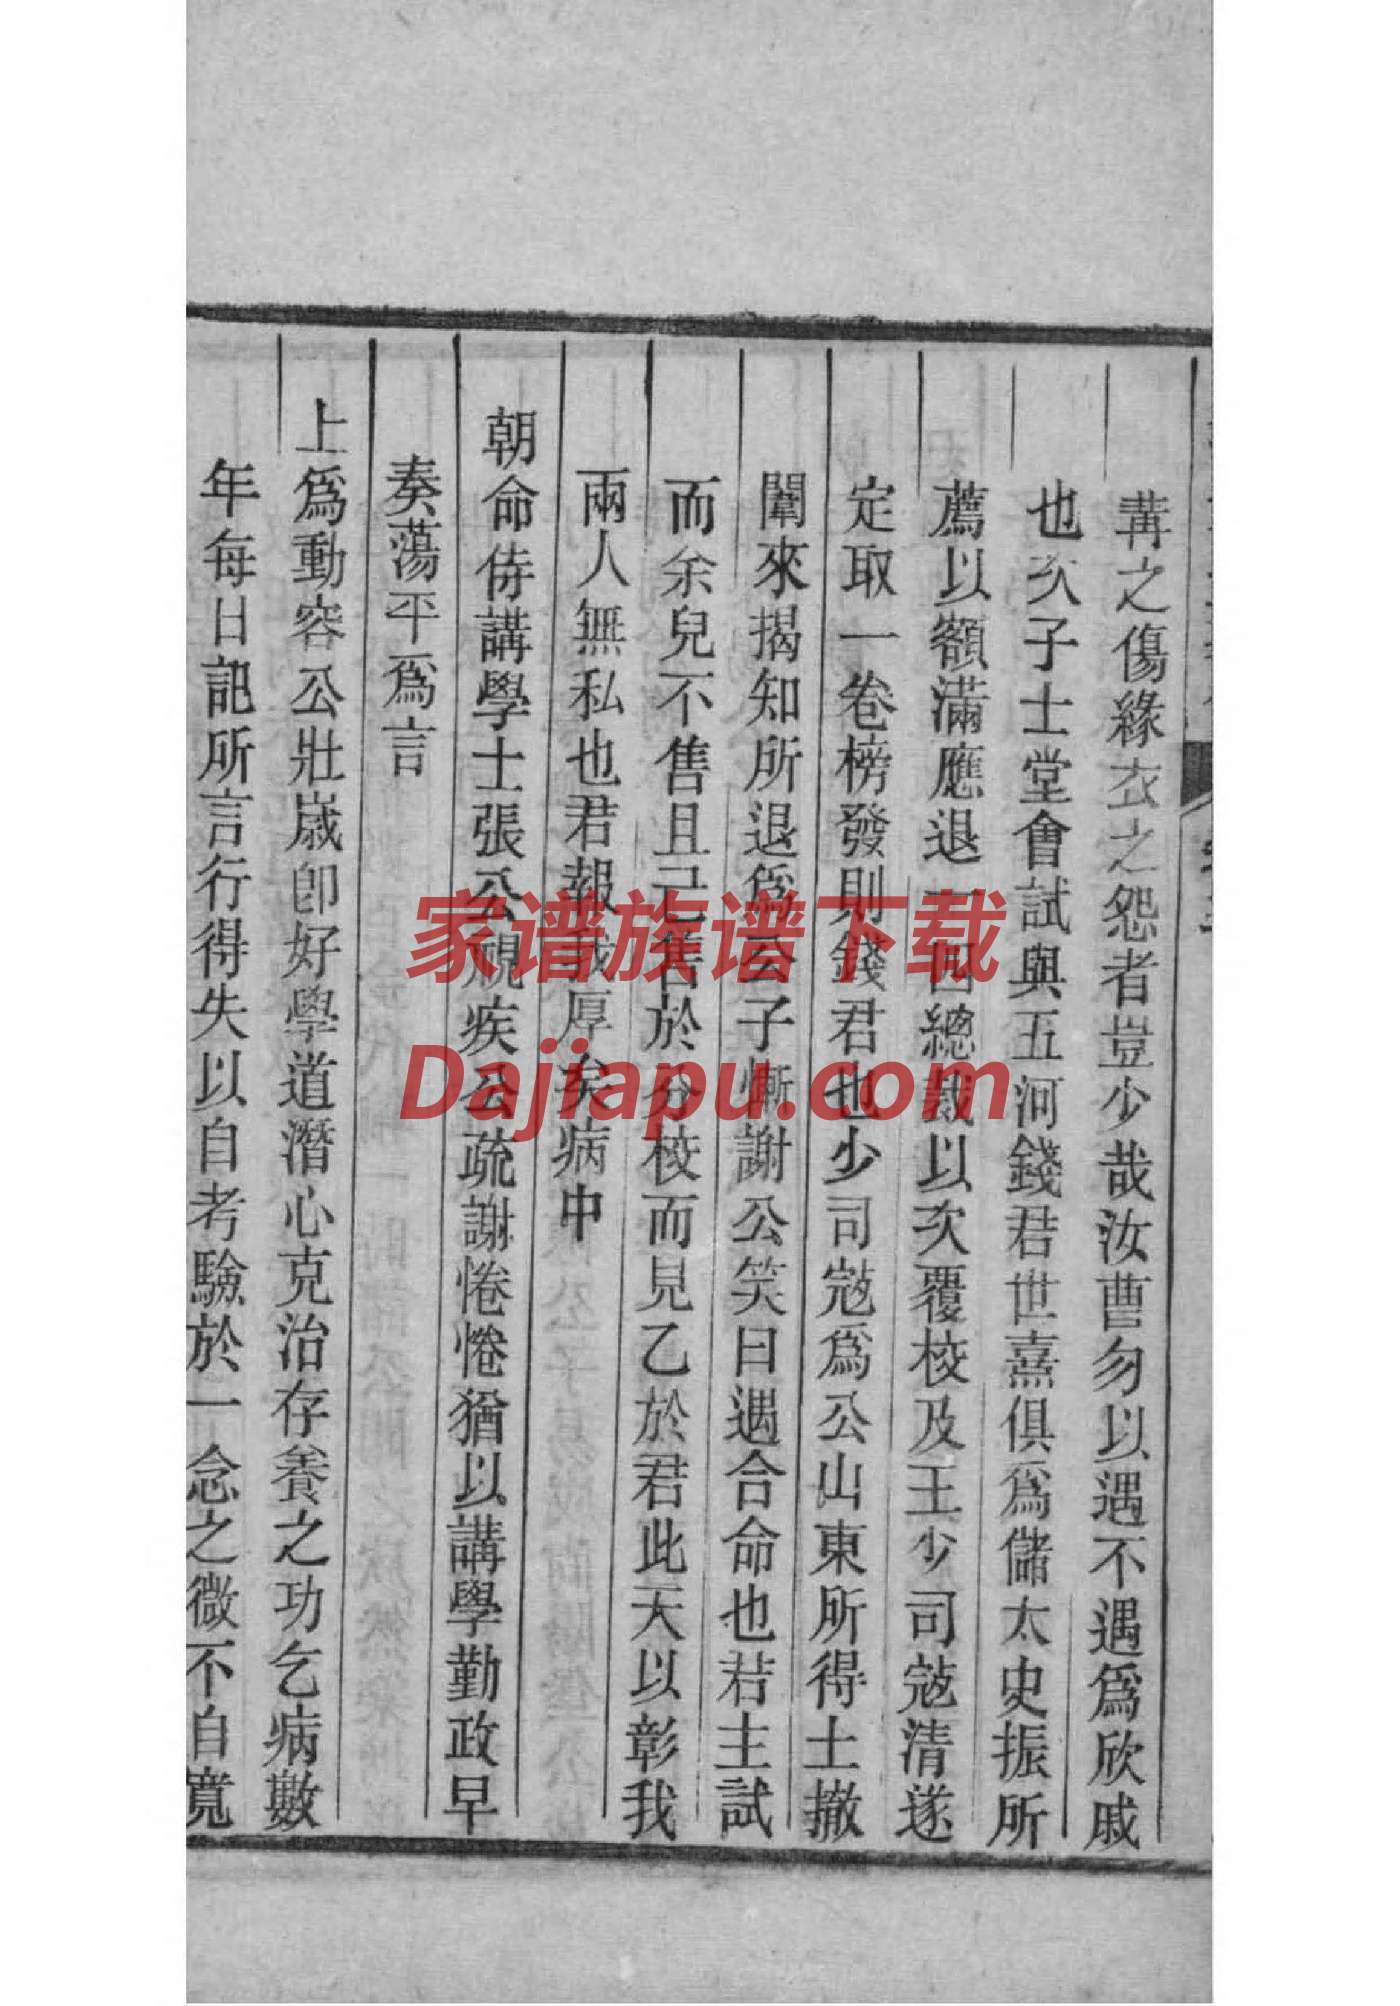 冓之傷緣衣之怨者豈少哉汝曹勿以遇不遇爲欣戚
也次子士堂會試與五河錢君世熹俱爲儲太史振所
薦以額滿應退一因總裁以次覆校及王少司寇清遂
定取一卷榜發則錢君也少司寇爲公山東所得士撤
闈來揭知所退爲公子慚謝公笑曰遇合命也若主試
而余兒不售且已售於分校而見乙於君此天以彰我
兩人無私也君報我厚矣病中
朝命侍講學士張公視疾公疏謝惓惓猶以講學勤政早
奏蕩平爲言
上爲動容公壯歲即好學道潛心克治存養之功乞病數
年每日記所言行得失以自考驗於一念之微不自寬
家谱族谱下载
Dajiapu.com